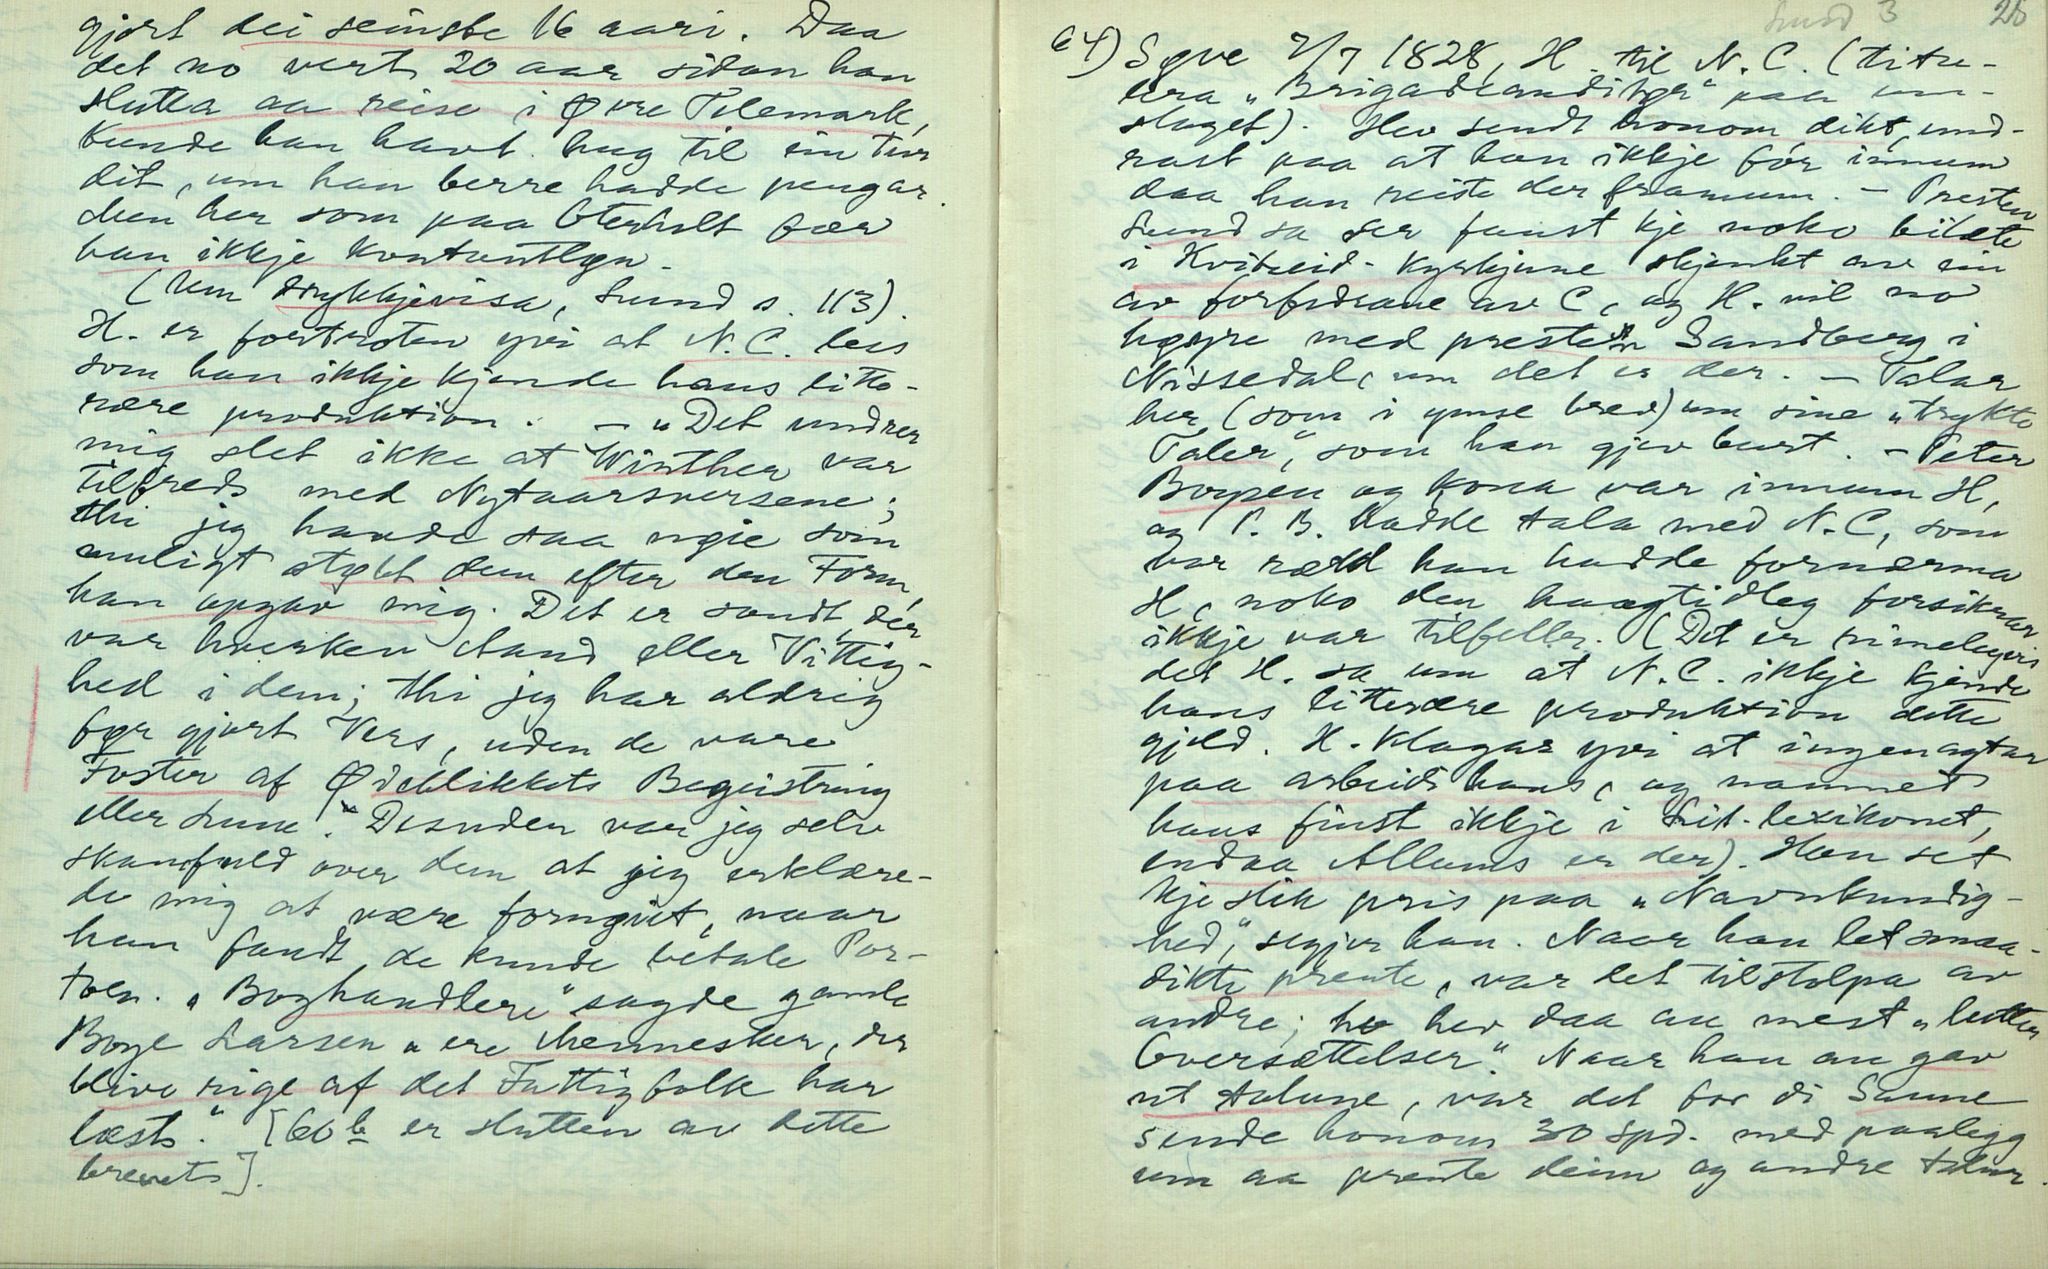 gjort dei seinste 16 aari. Daa
det no vert 20 aar sidan han
slutta aa reise i Øvre Telemark,
kunde han havt hug til ein tur
dit, um han berre hadde pengar.
Men her som paa Oterholt fær
han ikkje kontantløn.
(Um drykkjevisa, Lund s. 113).
H. er fortroten yvi at N. C. leis
som han ikkje kjende hans litte-
rære produktion. — "Det undrer
mig slet ikke at Winther var
tilfreds med Nytaarsversene;
thi jeg havde saa nøie som
muligt støbt dem efter den Form,
han opgav mig. Det er sandt, der
var hverken Aand eller Vittig-
hed i dem; thi jeg har aldrig
før gjort Vers, uden de vare
Foster af Øieblikkets Begeistring
eller Lune." Desuden var jeg selv
skamfuld over dem at jeg erklære-
de mig at være fornøiet, naar
han fandt de kunde betale Por-
toen. "Boghandlere" sagde gamle
Boye Larsen "ere Mennesker, der
blive rige af det Fattigfolk har
læst." [60 b er slutten av dette
brevet].
Lund 3 26
64) Søve 7/7 1828, H. til N. C. (titu-
lera "Brigadeauditør" paa um-
slaget). Hev sendt honom dikt, und-
rast paa at han ikkje før innum
daa han reiste der framum. — Presten
Lund sa der funst kje noko bilæte
i Kviteid-kyrkjune skjenkt av ein
av forfedrane av C, og H. vil no
høyre med presten Sandberg i
Nissedal, um det er der. — Talar
her (som i ymse brev) um sine "trykte
Taler", som han gjev burt. — Peter
Boyesen og kona var innum H,
og P. B. hadde tala med N. C, som
var rædd han hadde fornærma
H, noko den høgtidleg forsikrar
ikkje var tilfelle. (Det er rimelegvis
det H. sa um at N. C. ikkje kjende
hans litterære produktion dette
gjeld. H. klagar yvi at ingen agtar
paa arbeidi hans, og namnet
hans finst ikkje i Lit-lexikonet,
endaa Allums er der). Han set
kje slik pris paa "Navnkundig-
hed", segjer han. Naar han let smaa-
dikti prente, var det tilstelpa av
andre; he hev daa au mest "lutter
Oversættelser." Naar han au gav
ut talune, var det for di Sanne
sende honom 30 spd. med paalegg
um aa prente deim og andre talur.